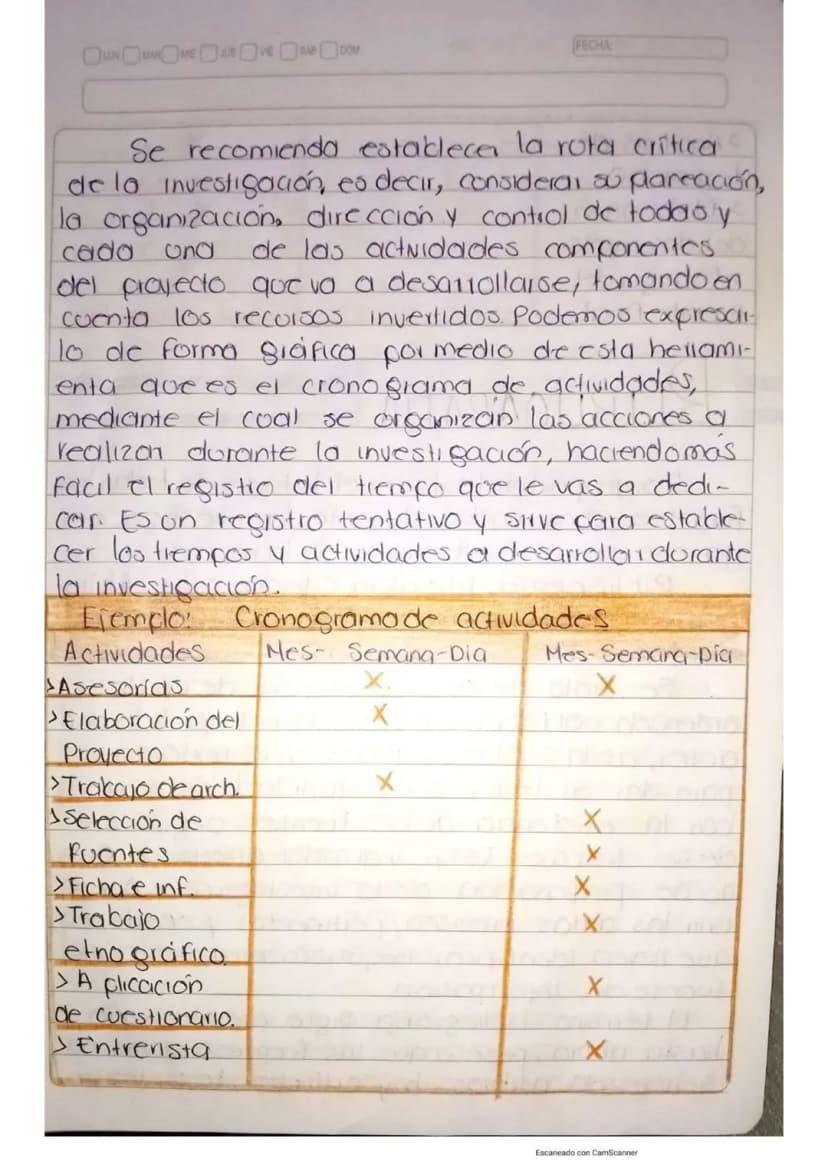 LUN MAR ME JUE VIE SAB DOM FECHA:
Se recomienda establecer la ruta crítica
de la investigación, es decir, considerar su planeación,
la organización, dirección y control de todas y
cada una de las actividades componentes
del proyecto que va a desarrollarse, tomando en
cuenta los recursos invertidos. Podemos expresar-
lo de forma gráfica por medio de esta herrami-
enta que es el cronograma de actividades,
mediante el cual se organizan las acciones a
realizar durante la investigación, haciendo más
facil el registro del tiempo que le vas a dedi-
car. Es un registro tentativo y sirve para estable-
cer los tiempos y actividades a desarrollar durante
la investigación.
Ejemplo: Cronograma de actividades
Actividades Mes- Semana-Dia Mes-Semana-Día
>Asesorías X X
>Elaboración del X
Proyecto
>Trabajo de arch. X
>Selección de X
fuentes X
>Ficha e inf. X
>Trabajo X
etnográfico.
>Aplicación X
de cuestionario.
>Entrevista X
Escaneado con CamScanner